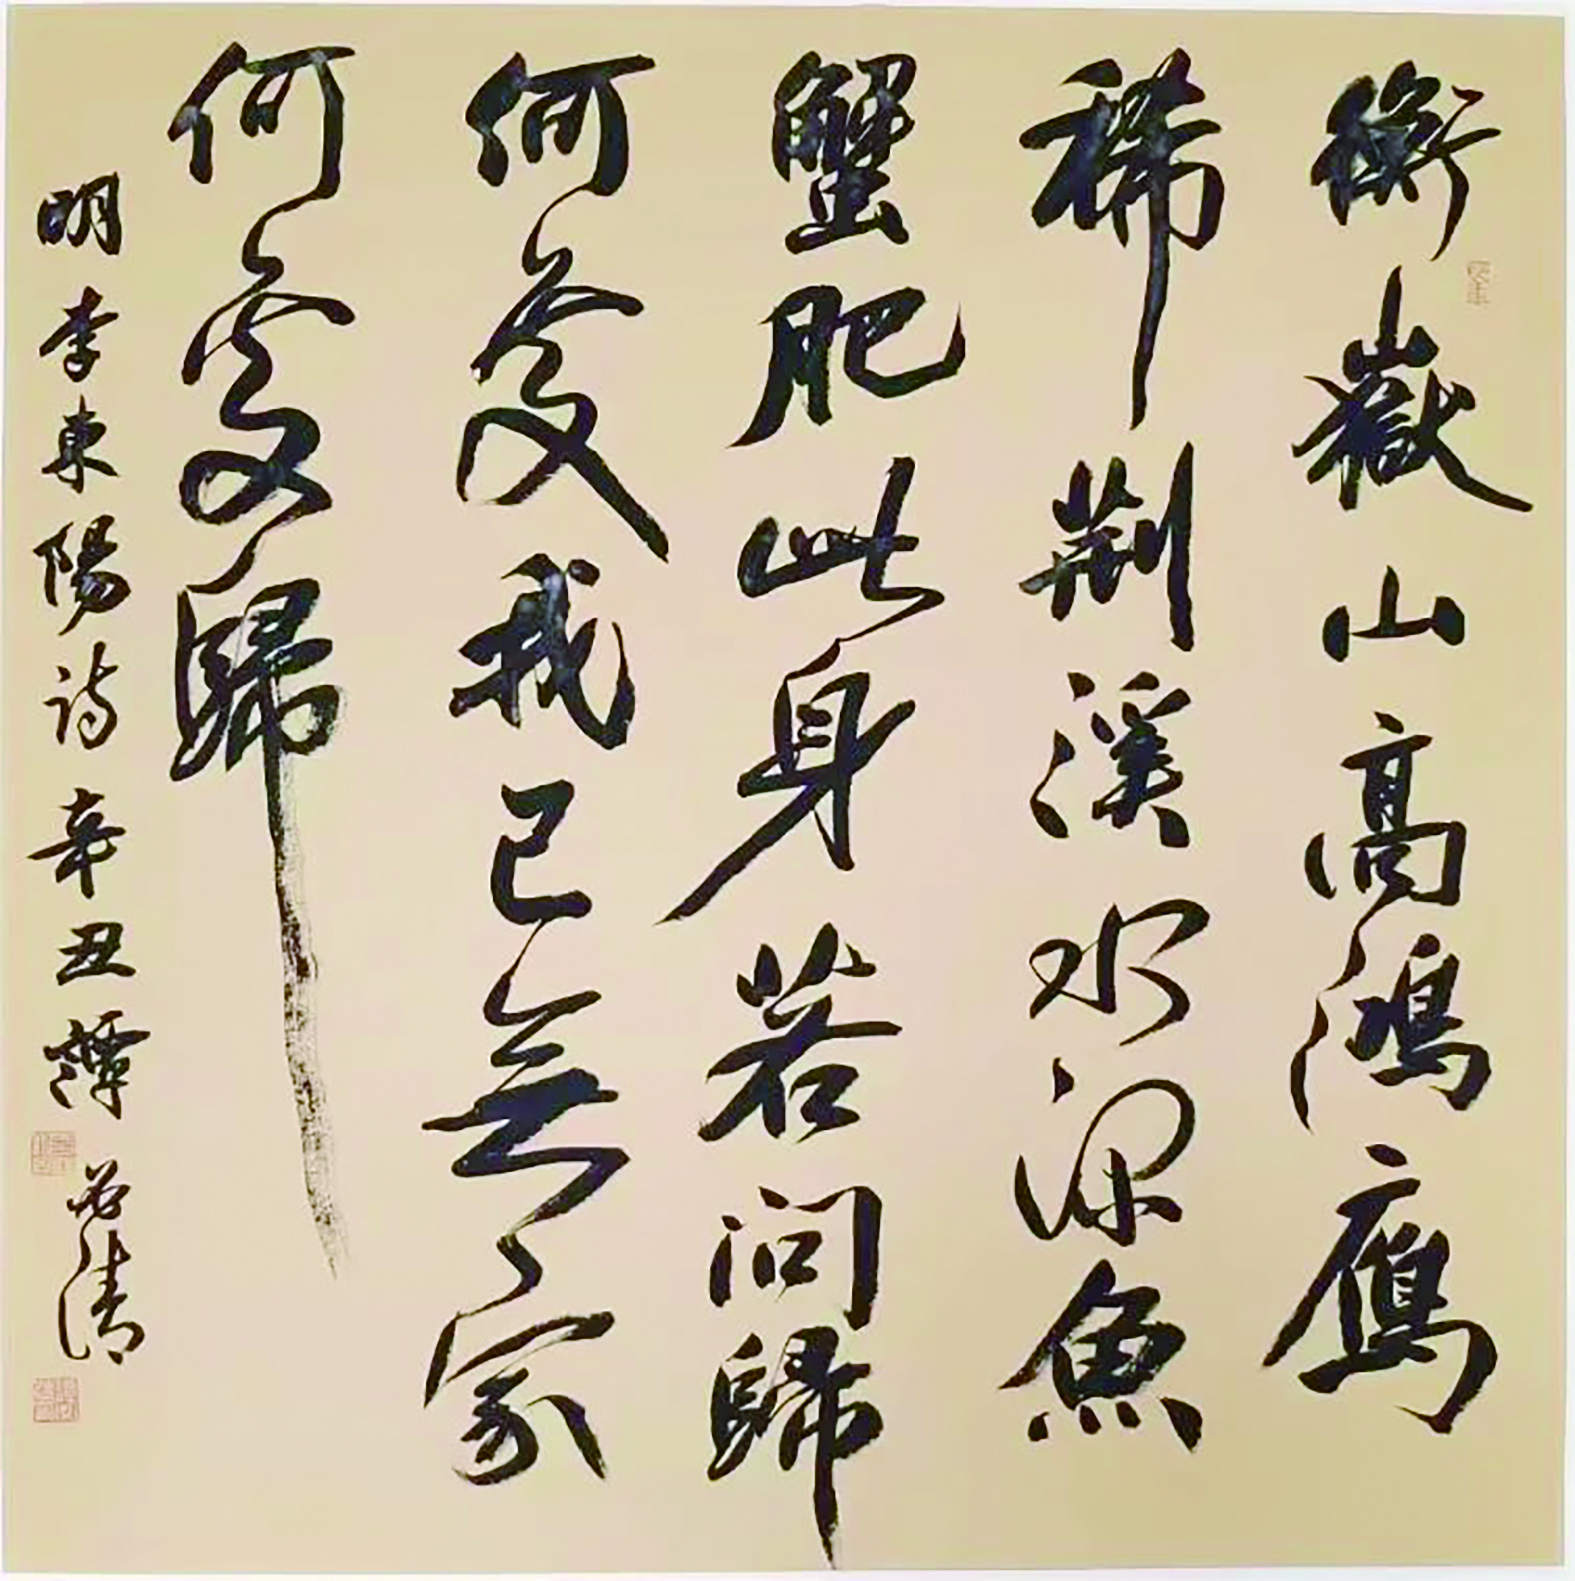 衡嶽山高鴻鴈
稀荆溪水深魚
蟹肥此身若問歸
何處我已無家
何處歸
明李東陽詩辛丑譚清